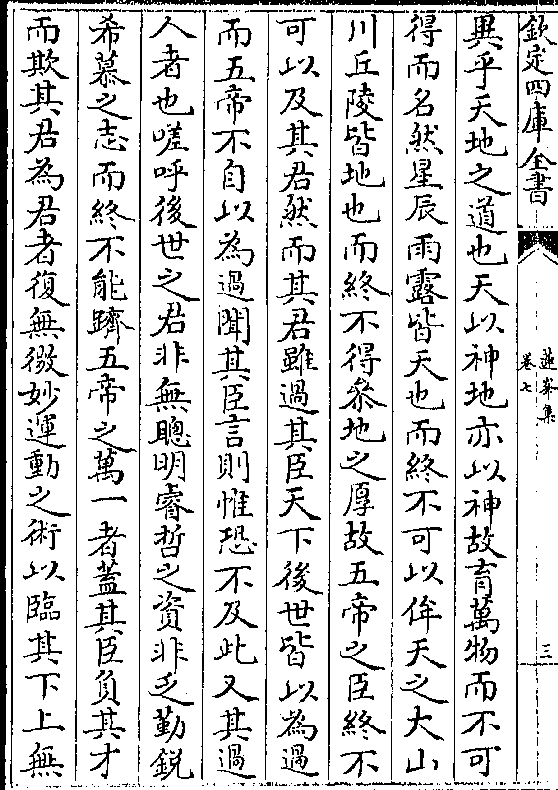 欽定四庫全書
蓮峯集
卷七
三
異乎天地之道也天以神地亦以神故育萬物而不可
得而名然星辰雨露皆天也而終不可以侔天之大山
川丘陵皆地也而終不得參地之厚故五帝之臣終不
可以及其君然而其君雖過其臣天下後世皆以為過
而五帝不自以為過聞其臣言則惟恐不及此又其過
人者也嗟呼後世之君非無聰明睿哲之資非乏勤銳
希慕之志而終不能躋五帝之萬一者蓋其臣負其才
而欺其君為君者復無微妙運動之術以臨其下上無